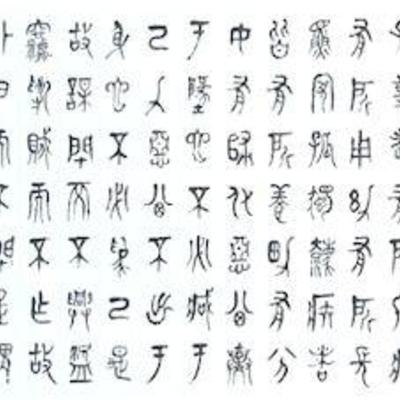 有所用幼有所長
矜寡孤獨廢疾者
皆有所養男有分
女有歸貨惡其棄
于地也不必藏于
己力惡其不出于
身也不必為己是
故謀閉而不興盜
竊亂賊而不作故
外戶而不閉是謂